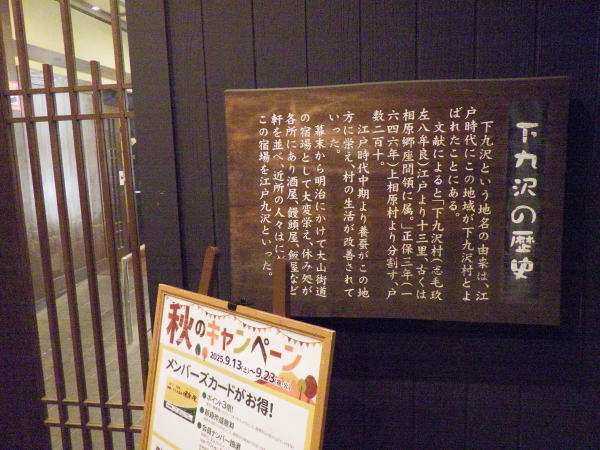 下九沢の歴史
下九沢という地名の由来は、江
戸時代にこの地域が下九沢村とよ
ばれたことにある。
文献によると「下九沢村(志毛玖
左八牟良)江戸より十三里、古くは
相原郷座間領に属。」正保三年(一
六四六年)上相原村より分割す、戸
数二百十。
江戸時代中期より養蚕がこの地
方に栄え、村の生活が改善されて
いった。
幕末から明治にかけて大山街道
の宿場として大変栄え、休み処が
各所にあり酒屋、饅頭屋、飯屋など
軒を並べ、近所の人々はに
この宿場を江戸九沢といった。
秋のキャンペーン
2025.9.13(土)～9.23(祝・火)
メンバーズカードがお得!
●ポイント3倍!
●新規作成無料
●会員ナンバー抽選